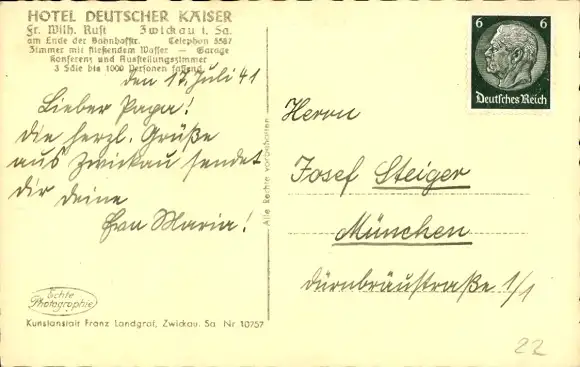 HOTEL DEUTSCHER KAISER
Fr. Wilh. Rust Zwickau i. Sa.
am Ende der Bahnhofstr. Telephon 5587
Zimmer mit fließendem Wasser — Garage
Konferenz und Ausstellungszimmer
3 Säle bis 1000 Personen fassend
den 17. Juli 41
Lieber Papa!
Die herzl. Grüße
aus Zwickau sendet
dir deine
Frau Maria!
Echte
Photographie
Kunstanstalt Franz Landgraf, Zwickau. Sa Nr. 10757
Alle Rechte vorbehalten
6 6
Deutsches Reich
Herrn
Josef Steiger
München
Dürnbräustraße 1/1
22